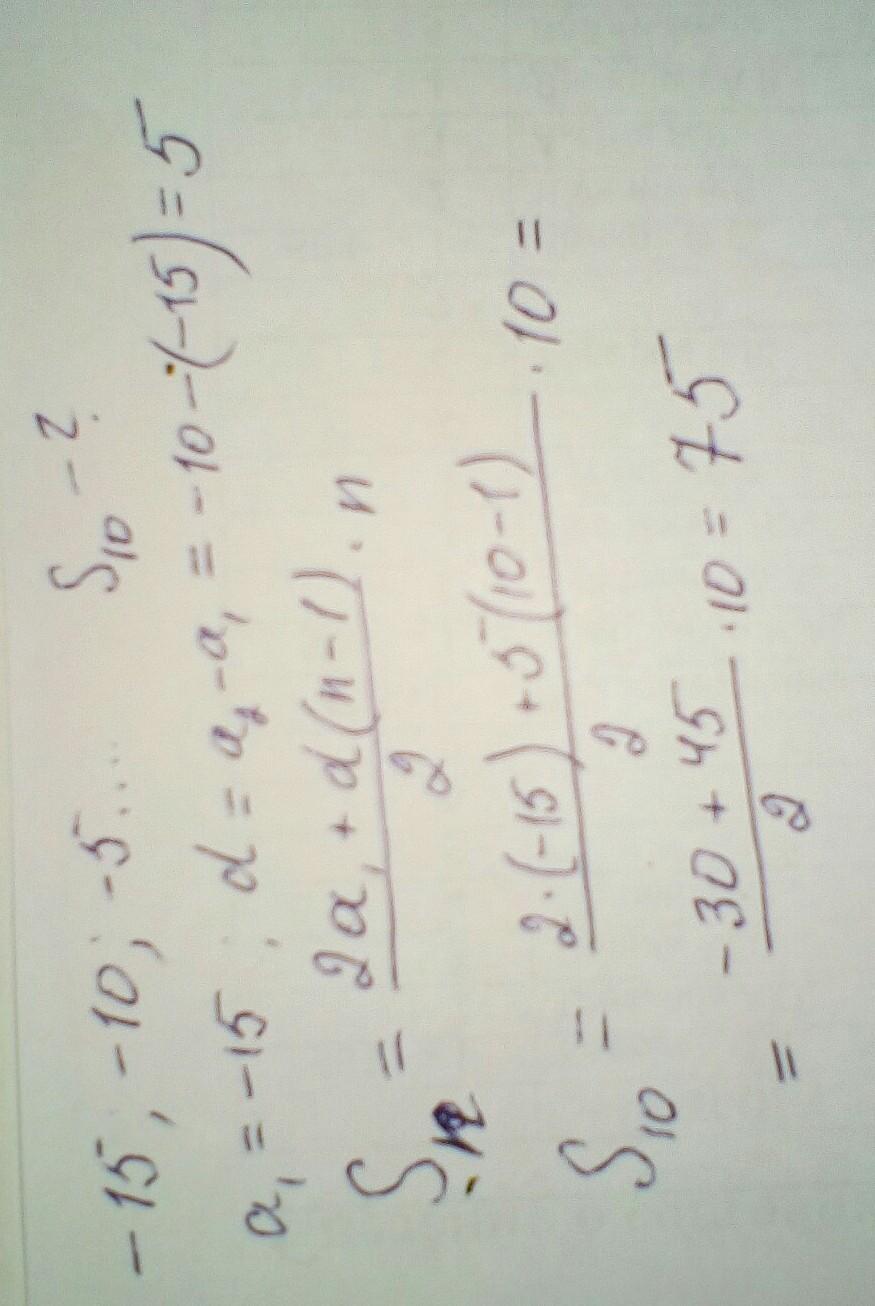 -15; -10; -5.... S₁₀ - ?
a₁ = -15; d = a₂ - a₁ = -10 - (-15) = 5
Sₙ = (2a₁ + d(n-1))/2 · n
S₁₀ = (2·(-15) + 5(10-1))/2 · 10 =
= (-30 + 45)/2 · 10 = 75